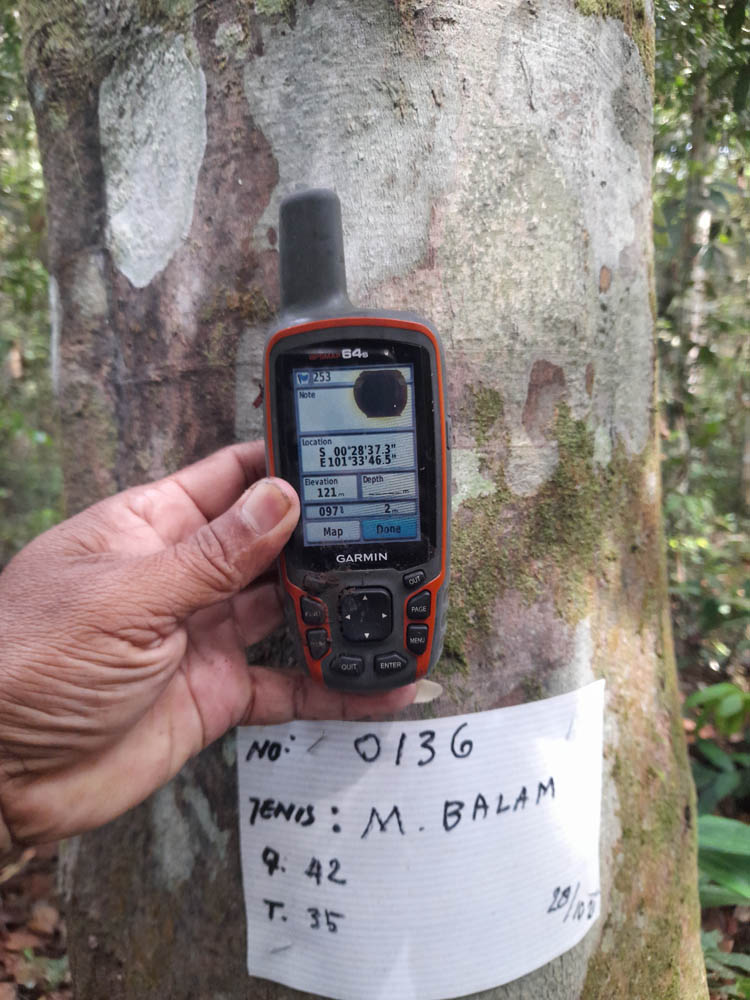 GPSMAP 64s
253
Note
Location
S 00°28'37.3"
E101°33'46.5"
Elevation Depth
121m
097° 2m
Map Done
GARMIN
OUT
PAGE
MENU
QUIT ENTER
NO: 0136
JENIS: M. BALAM
Q. 42
T. 35
28/10